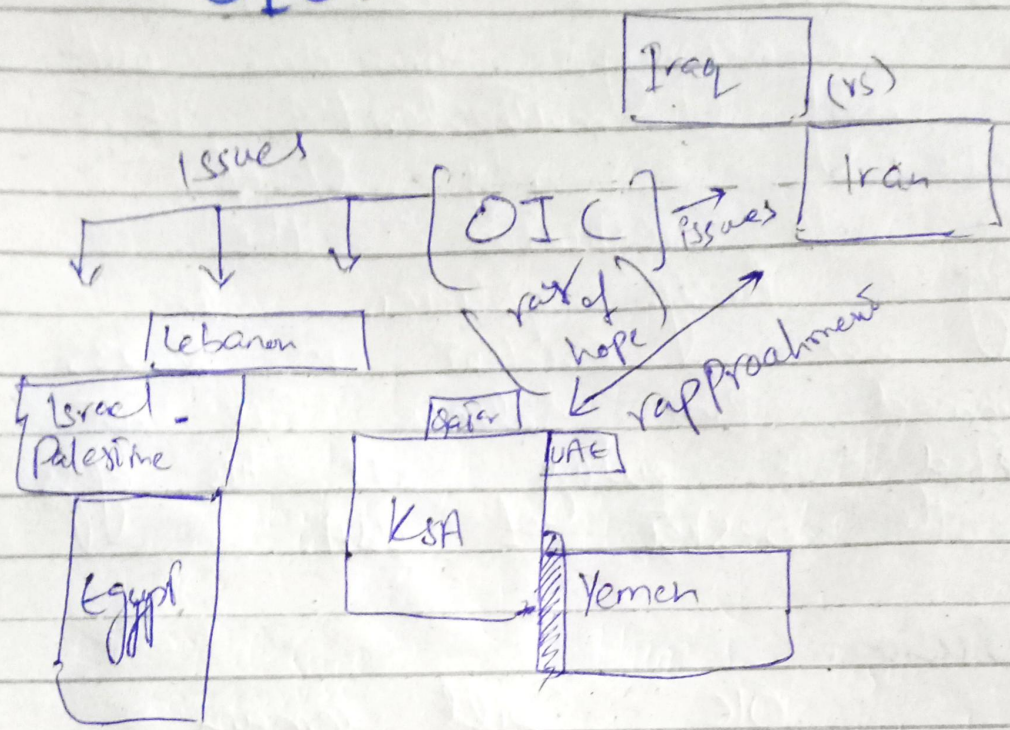 Iraq
(vs)
Iran
Issues
[OIC]
issues
(ray of
hope)
rapproahment
Lebanon
Israel -
Palestine
Qatar
UAE
KSA
Egypt
Yemen